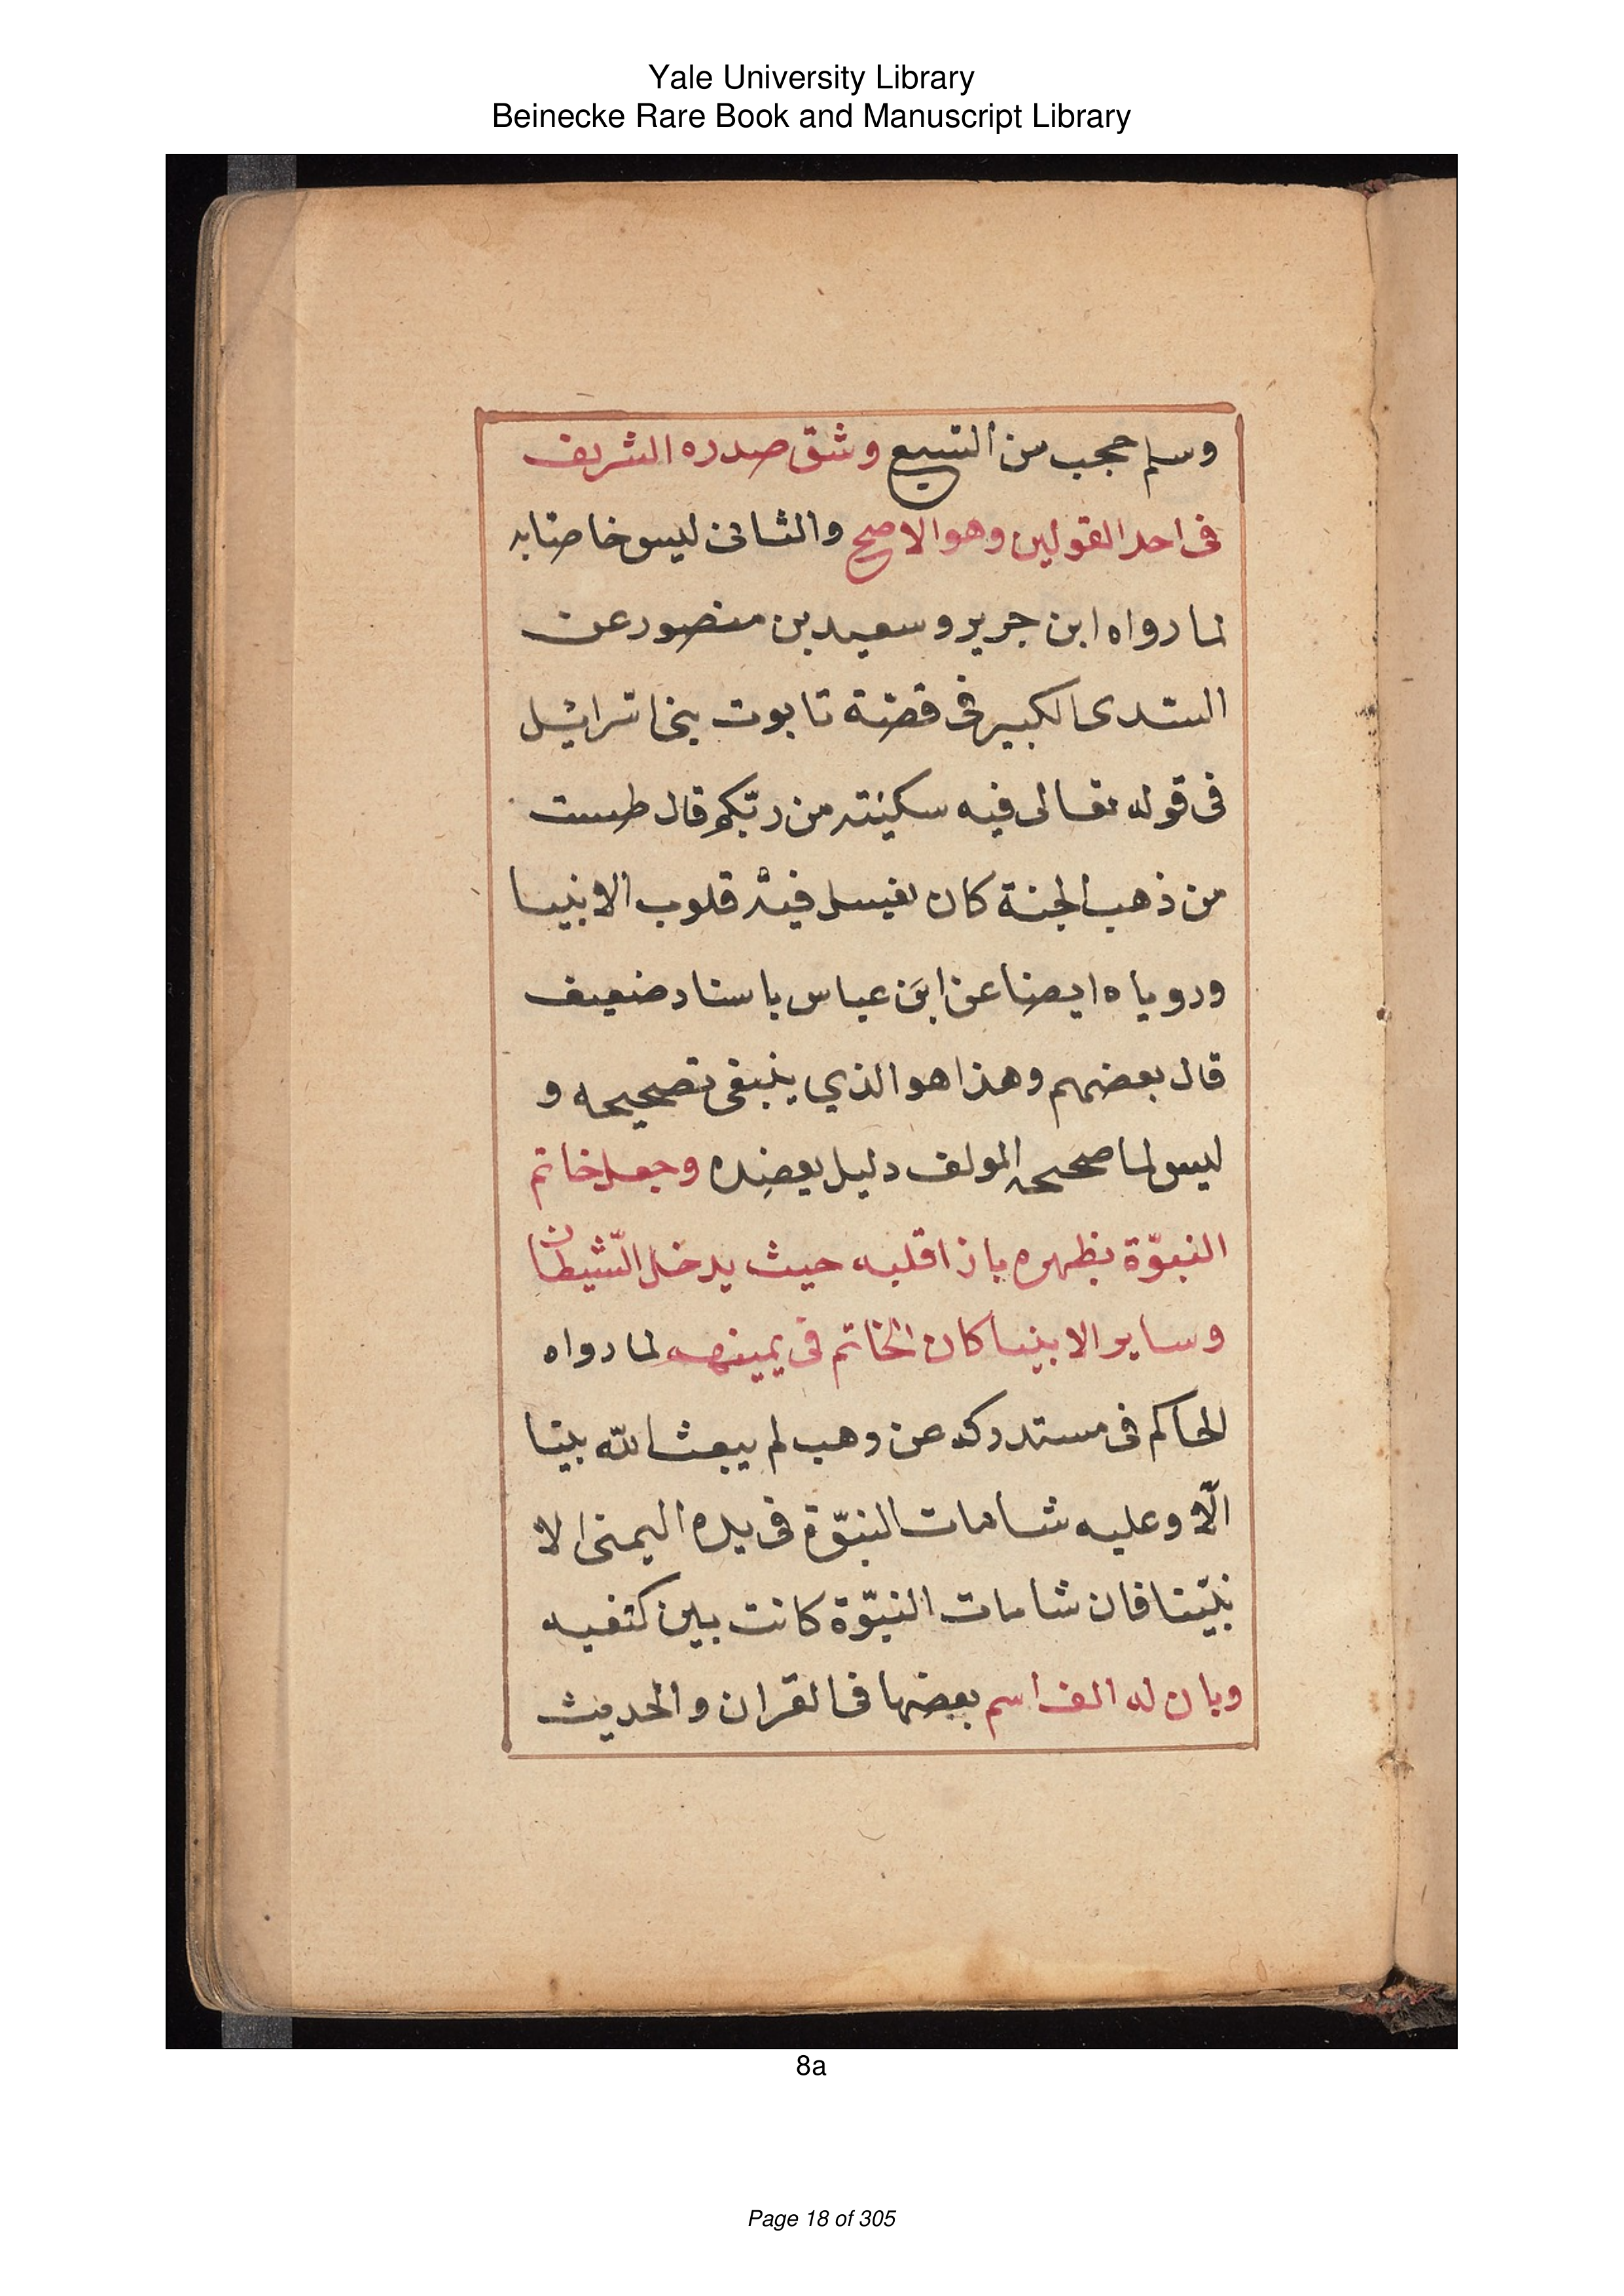 Yale University Library
Beinecke Rare Book and Manuscript Library
وسلم حجب من السبع وشق صدره الشريف
فى احد القولين وهو الاصح والثانى ليس خاصا به
لما رواه ابن جرير وسعيد بن منصور عن
السدى الكبير فى قصة تابوت بنى اسرائيل
فى قوله تعالى فيه سكينة من ربّكم قال طست
من ذهب الجنة كان يغسل فيه قلوب الانبيا
ورويا ه ايضا عن ابن عباس باسناد ضعيف
قال بعضهم وهذا هو الذي ينبغى تصحيحه و
ليس لما صححه المولف دليل يعضده وجعل خاتم
النبوّة بظهره بازا قلبه حيث يدخل الشّيطان
وساير الانبيا كان الخاتم فى يمينهم لما رواه
الحاكم فى مستدركه عن وهب لم يبعث الله نبيا
الّا وعليه شامات النبوّة فى يده اليمنى الا
نبيّنا فان شامات النبوّة كانت بين كتفيه
وبان له الف اسم بعضها فى القران والحديث
8a
Page 18 of 305